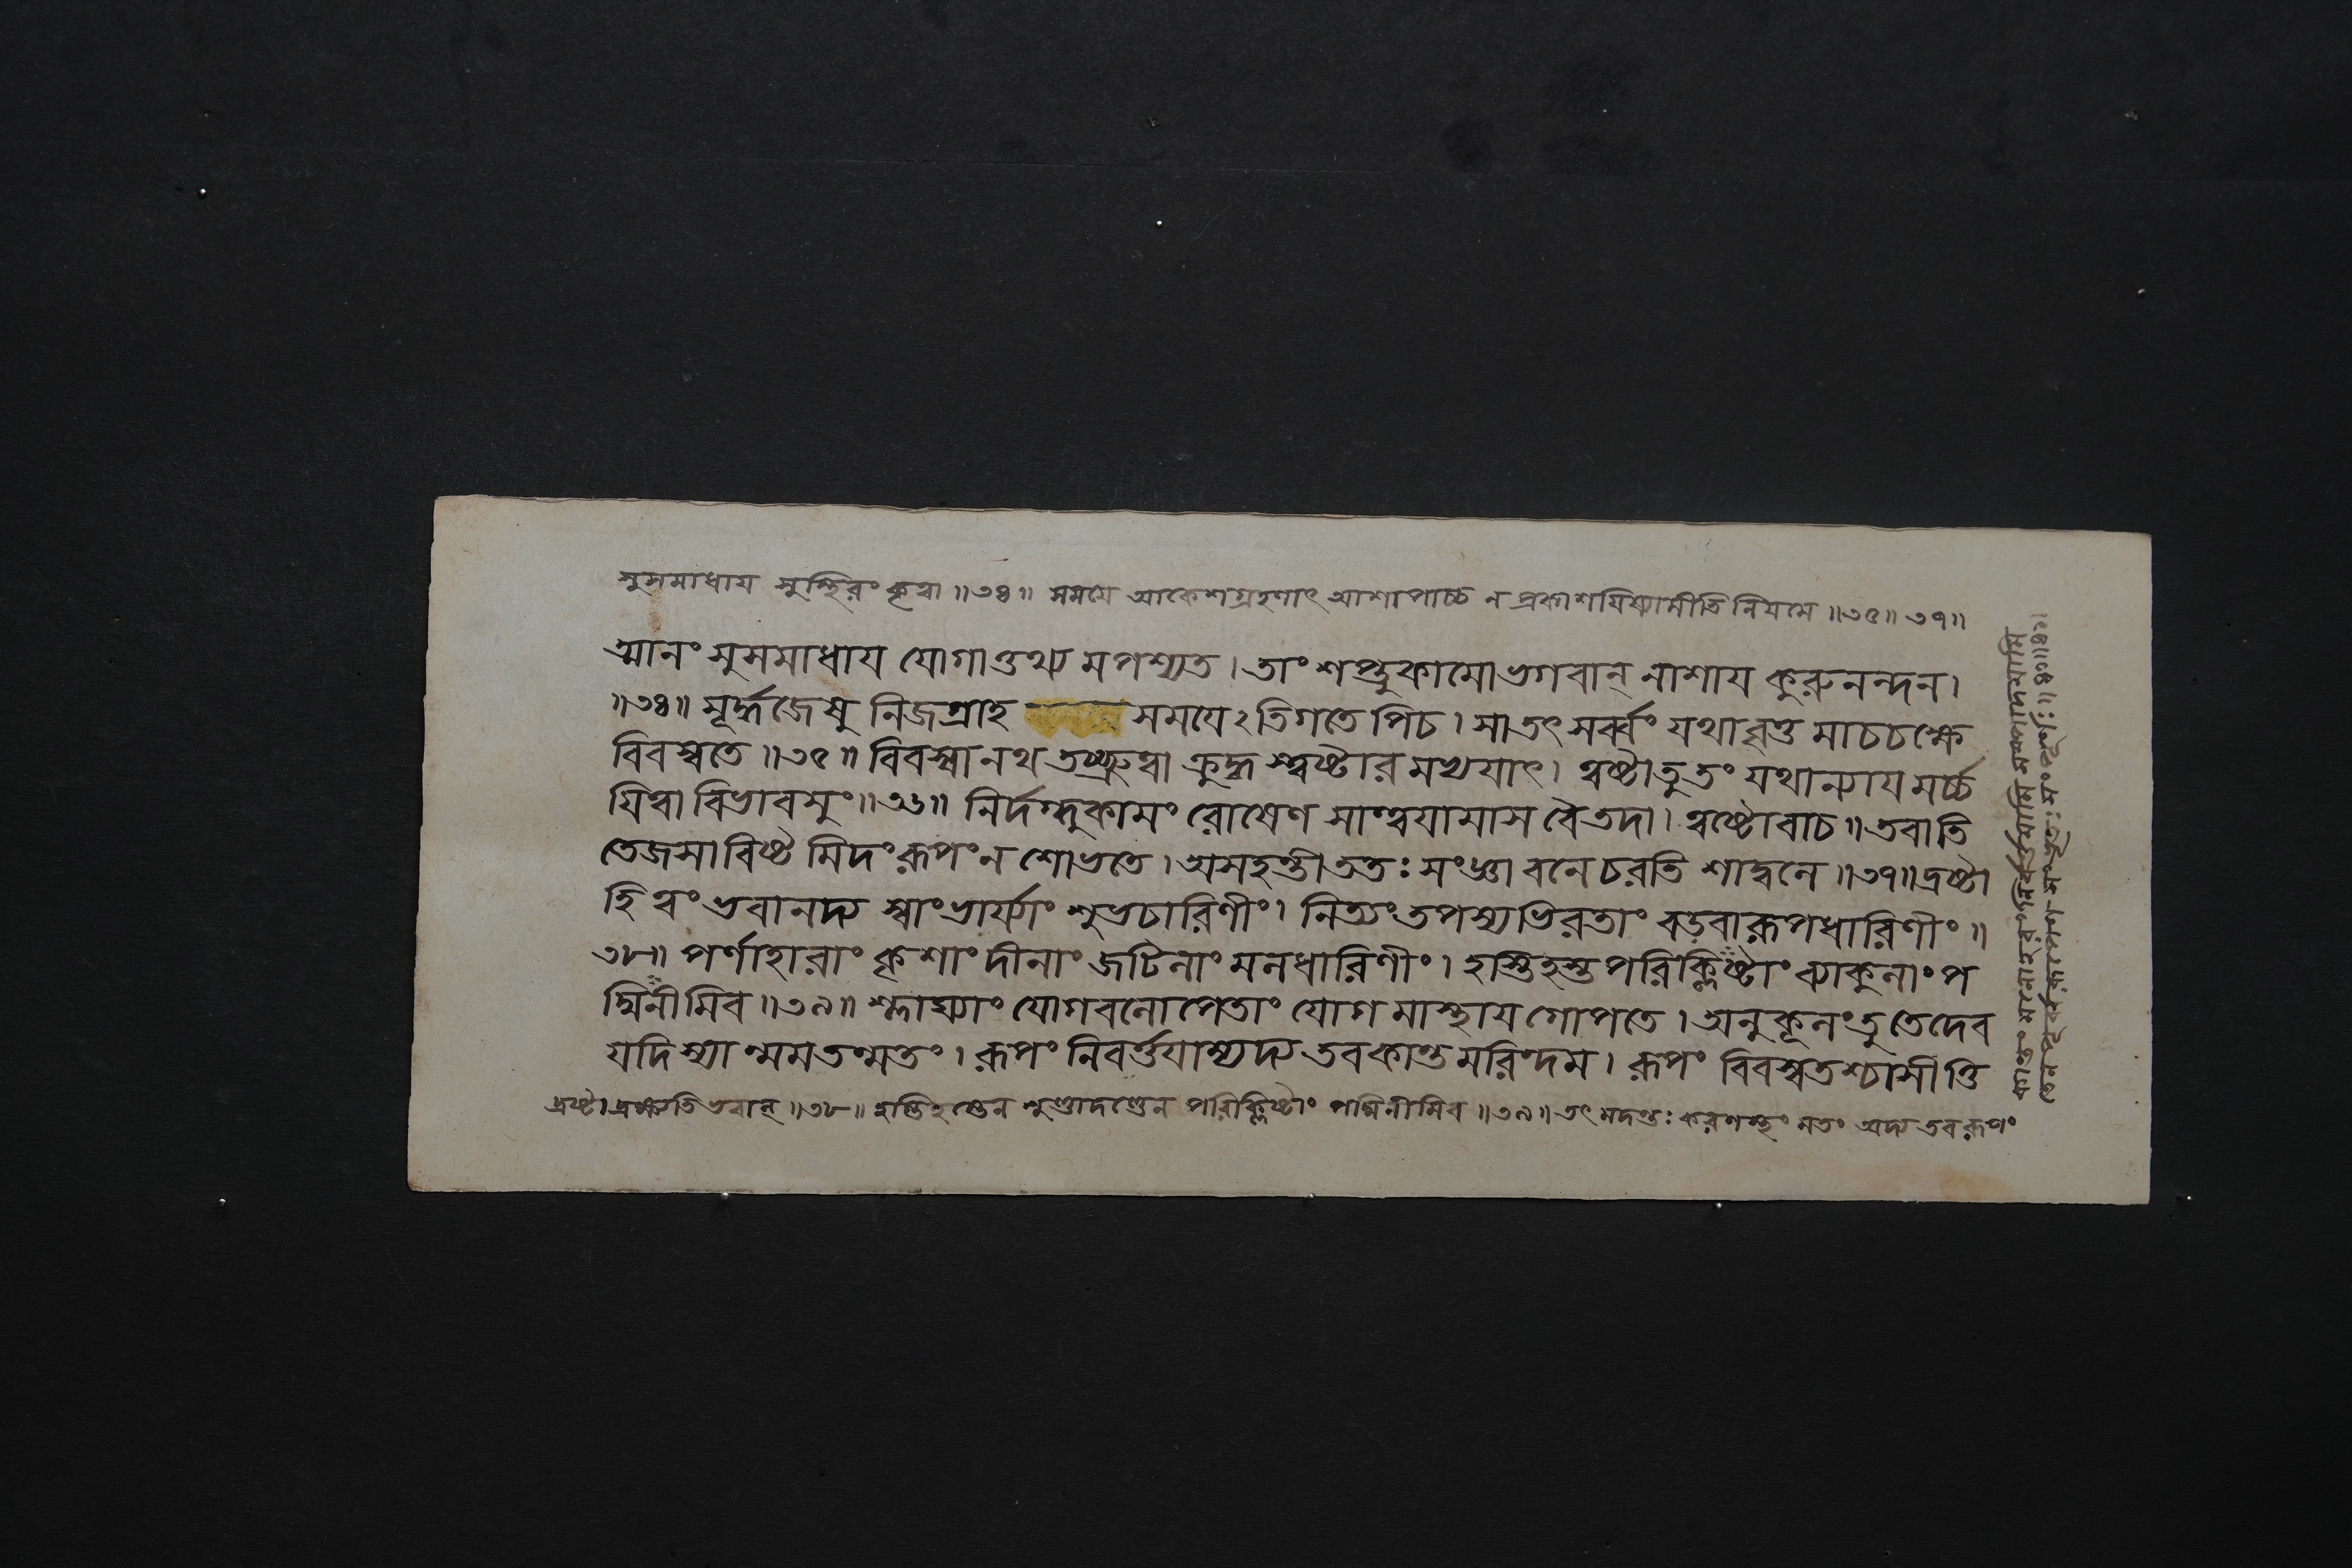 সুসমাধায সুস্থিরং কৃত্বা ॥৩৪॥ সময়ে আকেশগ্রহণাৎ আশাপাচ্চ ন প্রকাশযিষ্যামীতি নিযমে ॥৩৫॥ ৩৭॥
ত্মানং সুসমাধায যোগাত্তথ্য মপশ্যত। তাং শপ্তুকামো ভগবান্ নাশায কুরুনন্দন।
॥৩৪॥ মূর্দ্ধজেষু নিজগ্রাহ সময়েঽতিগতে পিচ। সা তৎ সর্ব্বং যথাবৃত্ত মাচচক্ষে
বিবস্বতে ॥৩৫॥ বিবস্বানথ তচ্ছ্রুত্বা ক্রুদ্ধ স্ত্বষ্টার মভ্যযাৎ। ত্বষ্টা তু তং যথান্যায মর্চ্চ
যিত্বা বিভাবসুং ॥৩৬॥ নির্দগ্ধুকামং রোষেণ সান্ত্বযামাস বৈ তদা। ত্বষ্টোবাচ ॥ তবাতি
তেজসাবিষ্ট মিদং রূপং ন শোভতে। অসহন্তী ততঃ সংজ্ঞা বনে চরতি শাদ্বলে ॥৩৭॥ দ্রষ্টা
হি ত্বং ভবানদ্য স্বাং ভার্য্যাং শুভচারিণীং। নিত্যং তপস্যভিরতাং বড়বারূপধারিণীং ॥
৩৮॥ পর্ণাহারাং কৃশাং দীনাং জটিলাং মলধারিণীং। হস্তিহস্তপরিক্লিষ্টাং ব্যাকুলাং প
দ্মিনীমিব ॥৩৯॥ শ্লাঘ্যাং যোগবলোপেতাং যোগ মাস্থায গোপতে। অনুকূলং তু তে দেব
যদি স্যা ন্মম তন্মতং। রূপং নিবর্ত্তযাম্যদ্য তব কান্ত মরিন্দম। রূপং বিবস্বতশ্চাসীত্তি
দ্রষ্টা দ্রক্ষ্যতি ভবান্ ॥৩৮॥ হস্তিহস্তেন শুণ্ডাদণ্ডেন পরিক্লিষ্টাং পদ্মিনীমিব ॥৩৯॥ তৎ মদন্তঃকরণস্থং মতং অদ্য তব রূপং